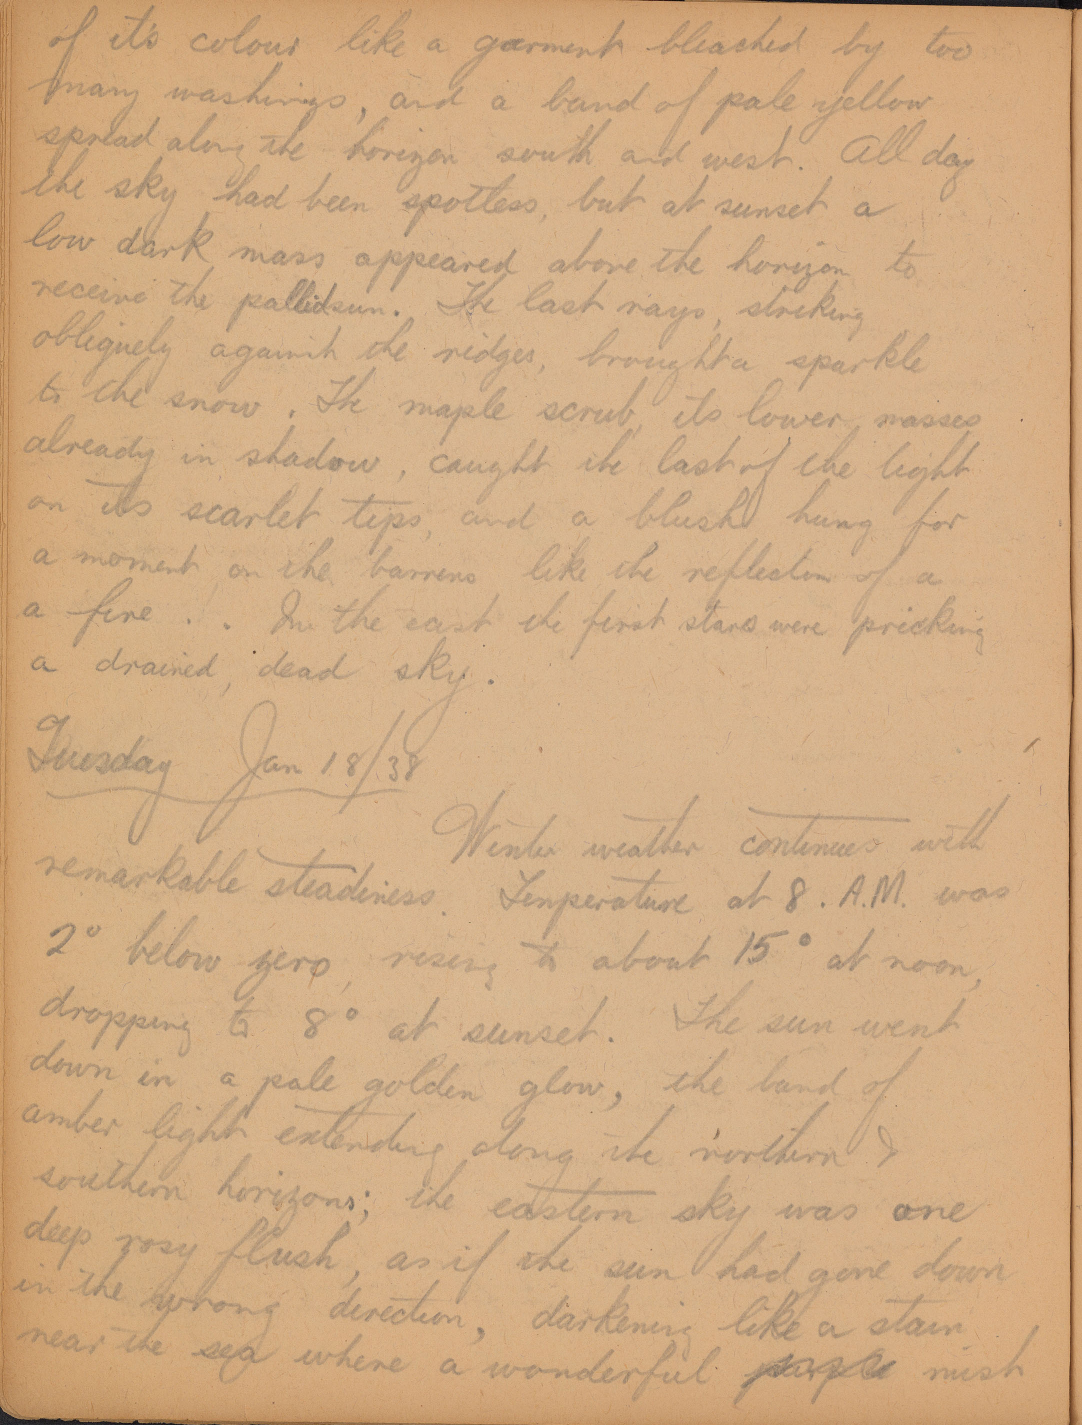 of it's colour like a garment bleached by too
many washings, and a band of pale yellow
spread along the horizon south and west. All day
the sky had been spotless, but at sunset a
low dark mass appeared above the horizon to
receive the pallid sun. The last rays, striking
obliquely against the ridges, brought a sparkle
to the snow. The maple scrub, its lower masses
already in shadow, caught the last of the light
on its scarlet tips, and a blush hung for
a moment on the barrens like the reflection of a
a fire . . In the east the first stars were pricking
a drained, dead sky.
Tuesday Jan 18/38
Winter weather continues with
remarkable steadiness. Temperature at 8. A.M. was
2° below zero, rising to about 15° at noon,
dropping to 8° at sunset. The sun went
down in a pale golden glow, the band of
amber light extending along the northern &
southern horizons; the eastern sky was one
deep rosy flush, as if the sun had gone down
in the wrong direction, darkening like a stain
near the sea where a wonderful mist